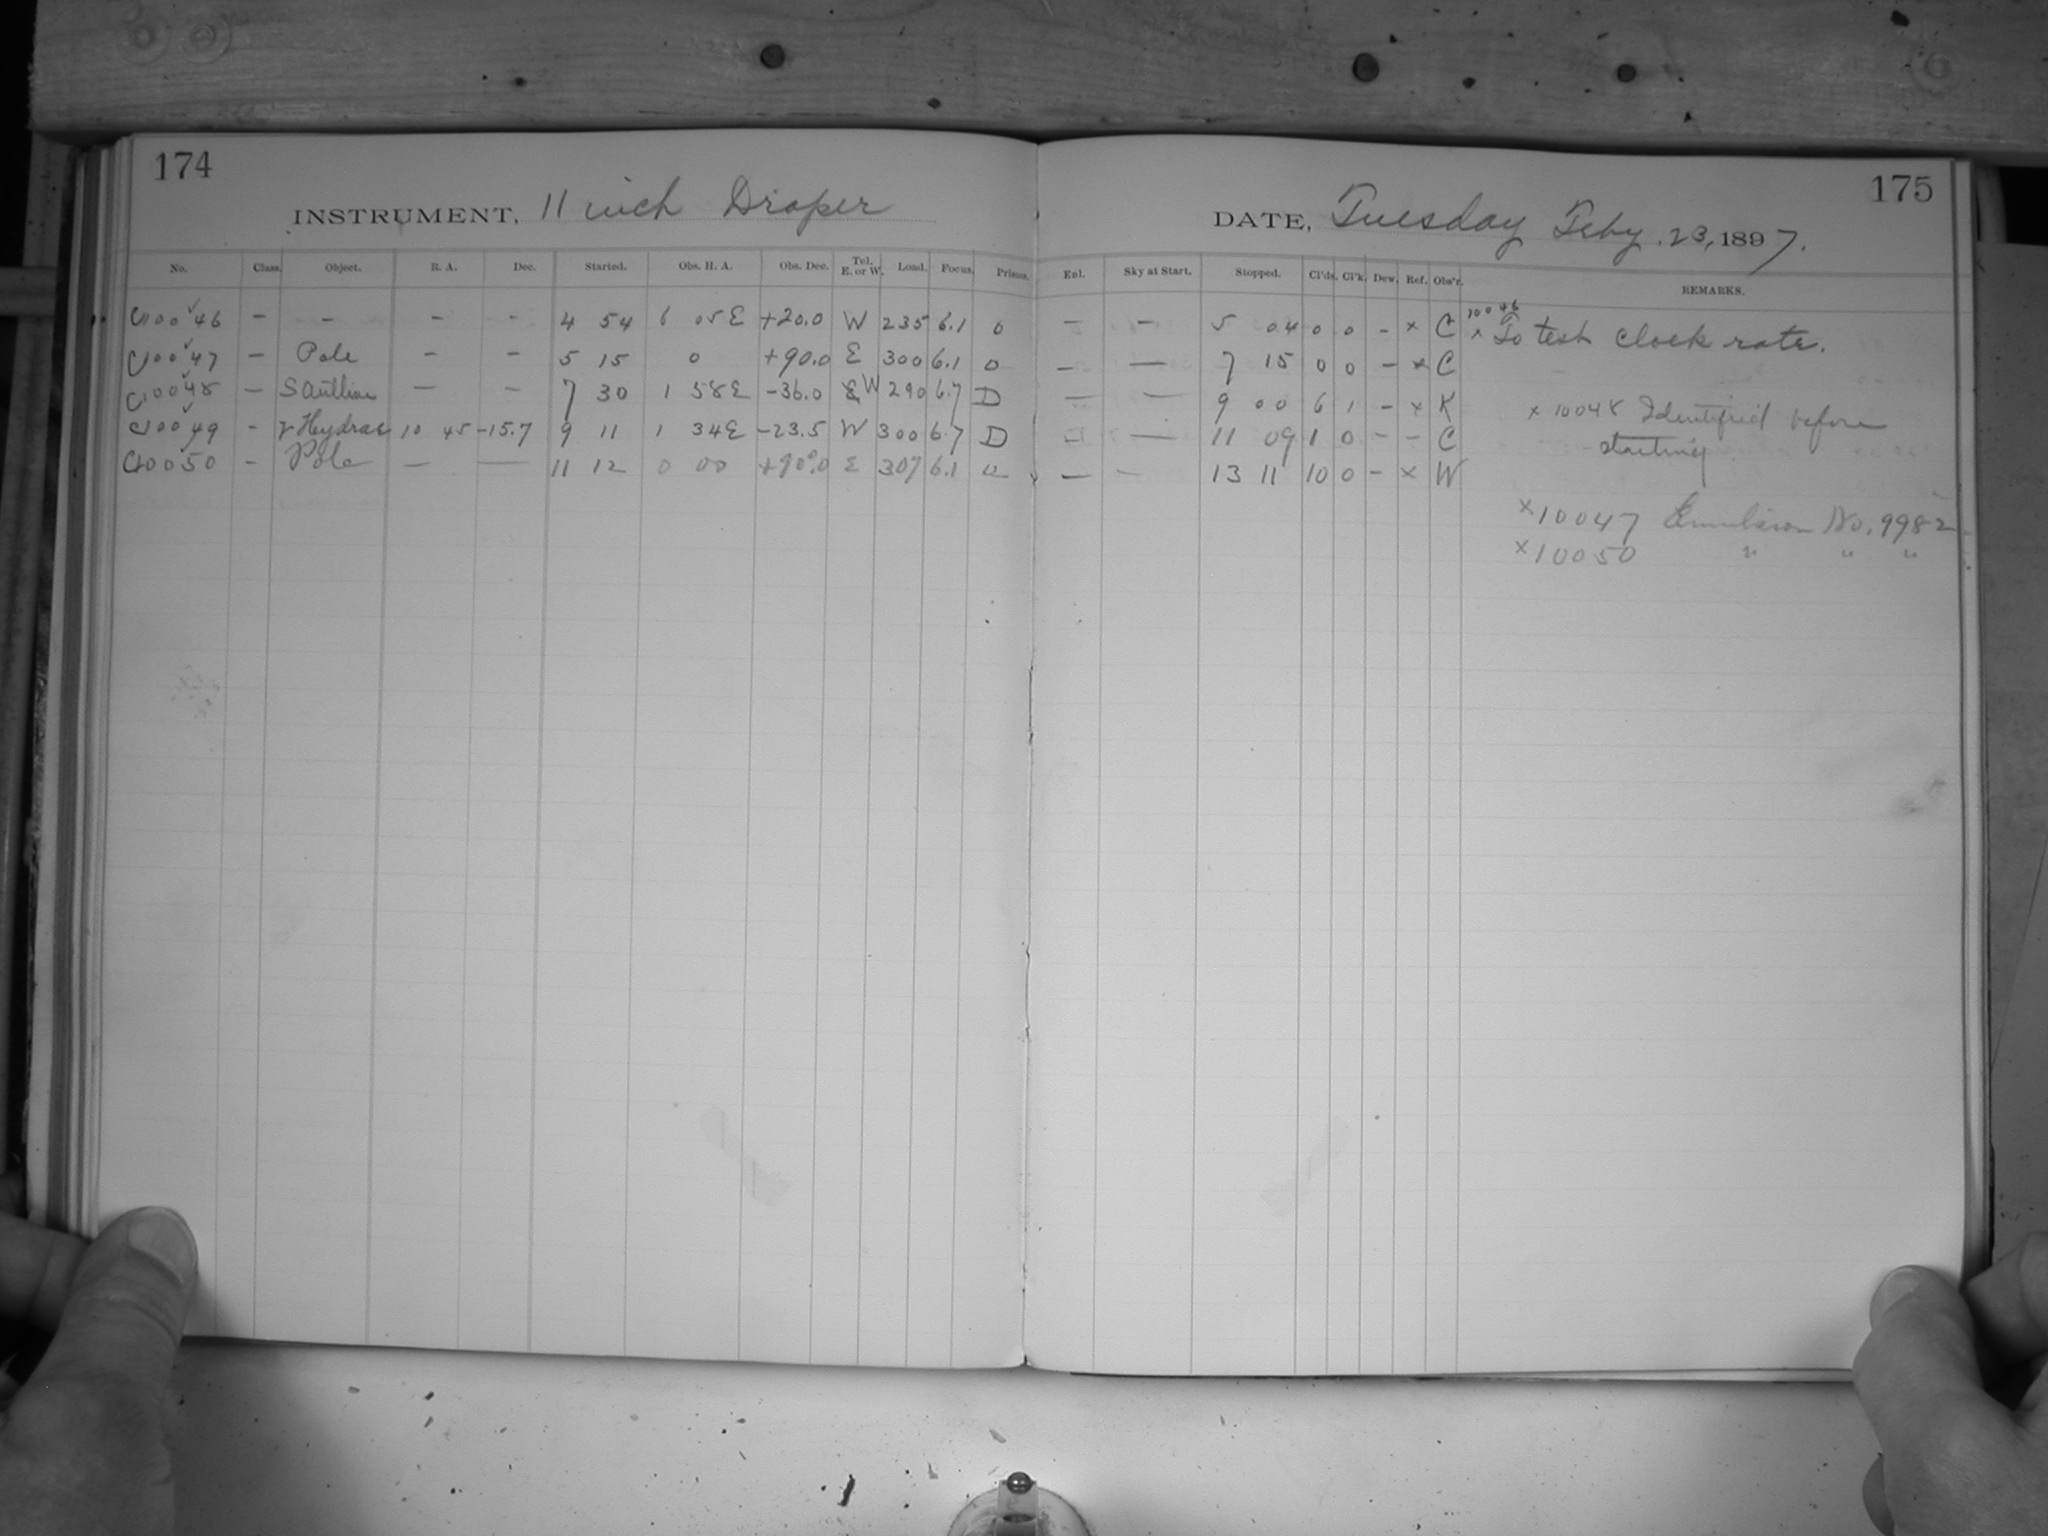 174
INSTRUMENT, 11 inch Draper
No. Class. Object. R. A. Dec. Started. Obs. H. A. Obs. Dec. Tel. E. or W. Load. Focus. Prisms.
C10046 – – – – 4 54 6 05E +20.0 W 235 6.1 0
C10047 – Pole – – 5 15 0 +90.0 E 300 6.1 0
C10048 – S Antliae – – 7 30 1 58E -36.0 E W 290 6.7 D
C10049 – γ Hydrae 10 45 -15.7 9 11 1 34E -23.5 W 300 6.7 D
C10050 – Pole – – 11 12 0 00 +90.0 E 307 6.1
175
DATE, Tuesday Feby. 23, 1897.
Enl. Sky at Start. Stopped. Cl'ds. Cl'k. Dew. Ref. Obs'r. REMARKS.
– – 5 04 0 0 – × C 10046 × To test clock rate.
– – 7 15 0 0 – × C
– – 9 00 6 1 – × K × 10048 Identified before
– – 11 09 1 0 – – C starting
– – 13 11 10 0 – × W
×10047 Emulsion No. 9982
×10050 " " "